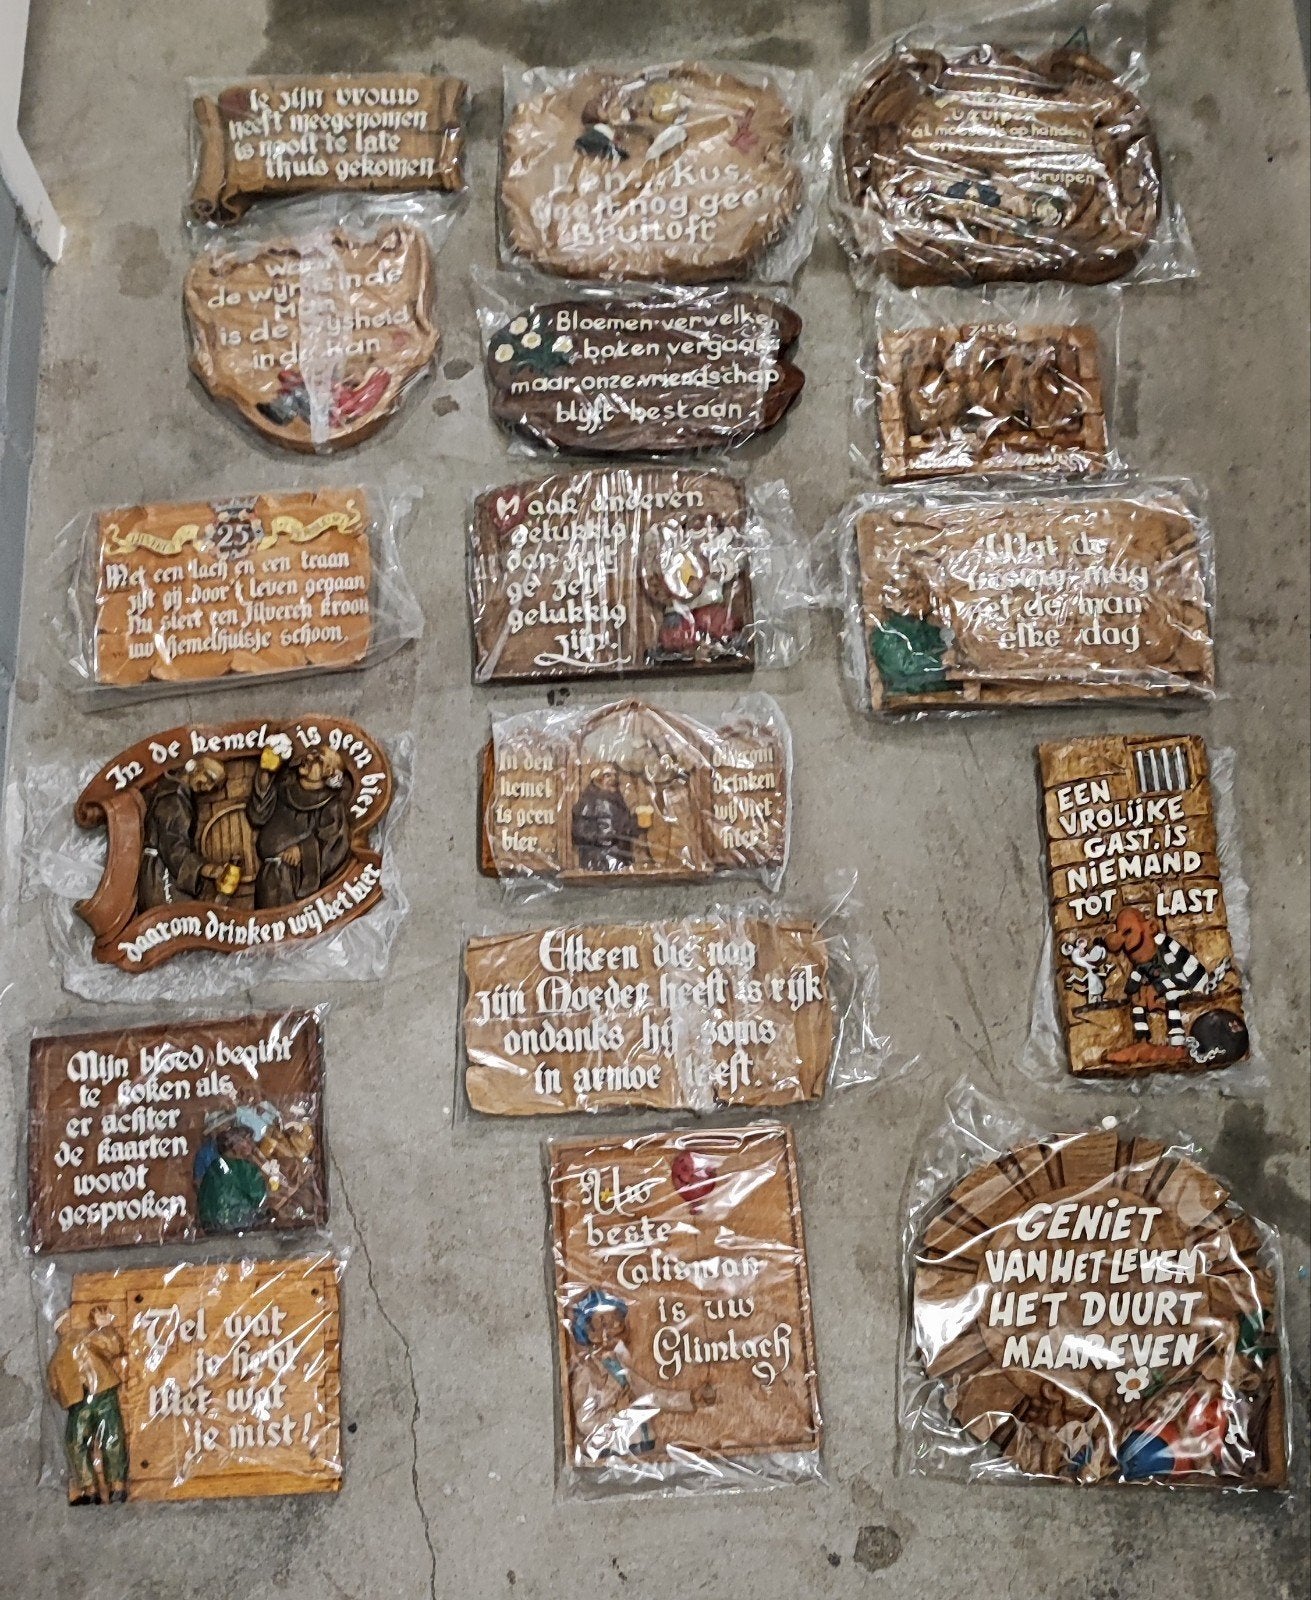 ie zijn vrouw
heeft meegenomen
is nooit te late
thuis gekomen
Een kus
heeft nog geen
Bruiloft
kruipen
al moet ik op handen
kruipen
de wijn is in de
Man
is de wijsheid
in de kan
Bloemen verwelken
boken vergaan
maar onze vriendschap
blijft bestaan
ZIEN
25
Met een lach en een traan
zijt gij door 't leven gegaan
Nu siert een Zilveren kroon
uw Hemelhuisje schoon.
Maak anderen
gelukkig
dan zult
ge zelf
gelukkig
zijn!
Wat de
mag
et de man
elke dag.
In de hemel is geen bier
daarom drinken wij het hier
In den
hemel
is geen
bier...
daarom
drinken
wij het
hier!
EEN
VROLIJKE
GAST, IS
NIEMAND
TOT LAST
Elkeen die nog
zijn Moeder heeft is rijk
ondanks hij soms
in armoe leeft.
Mijn bloed begint
te koken als
er achter
de kaarten
wordt
gesproken
Uw
beste
Talisman
is uw
Glimlach
GENIET
VAN HET LEVEN
HET DUURT
MAAR EVEN
Tel wat
je hebt.
Niet wat
je mist!